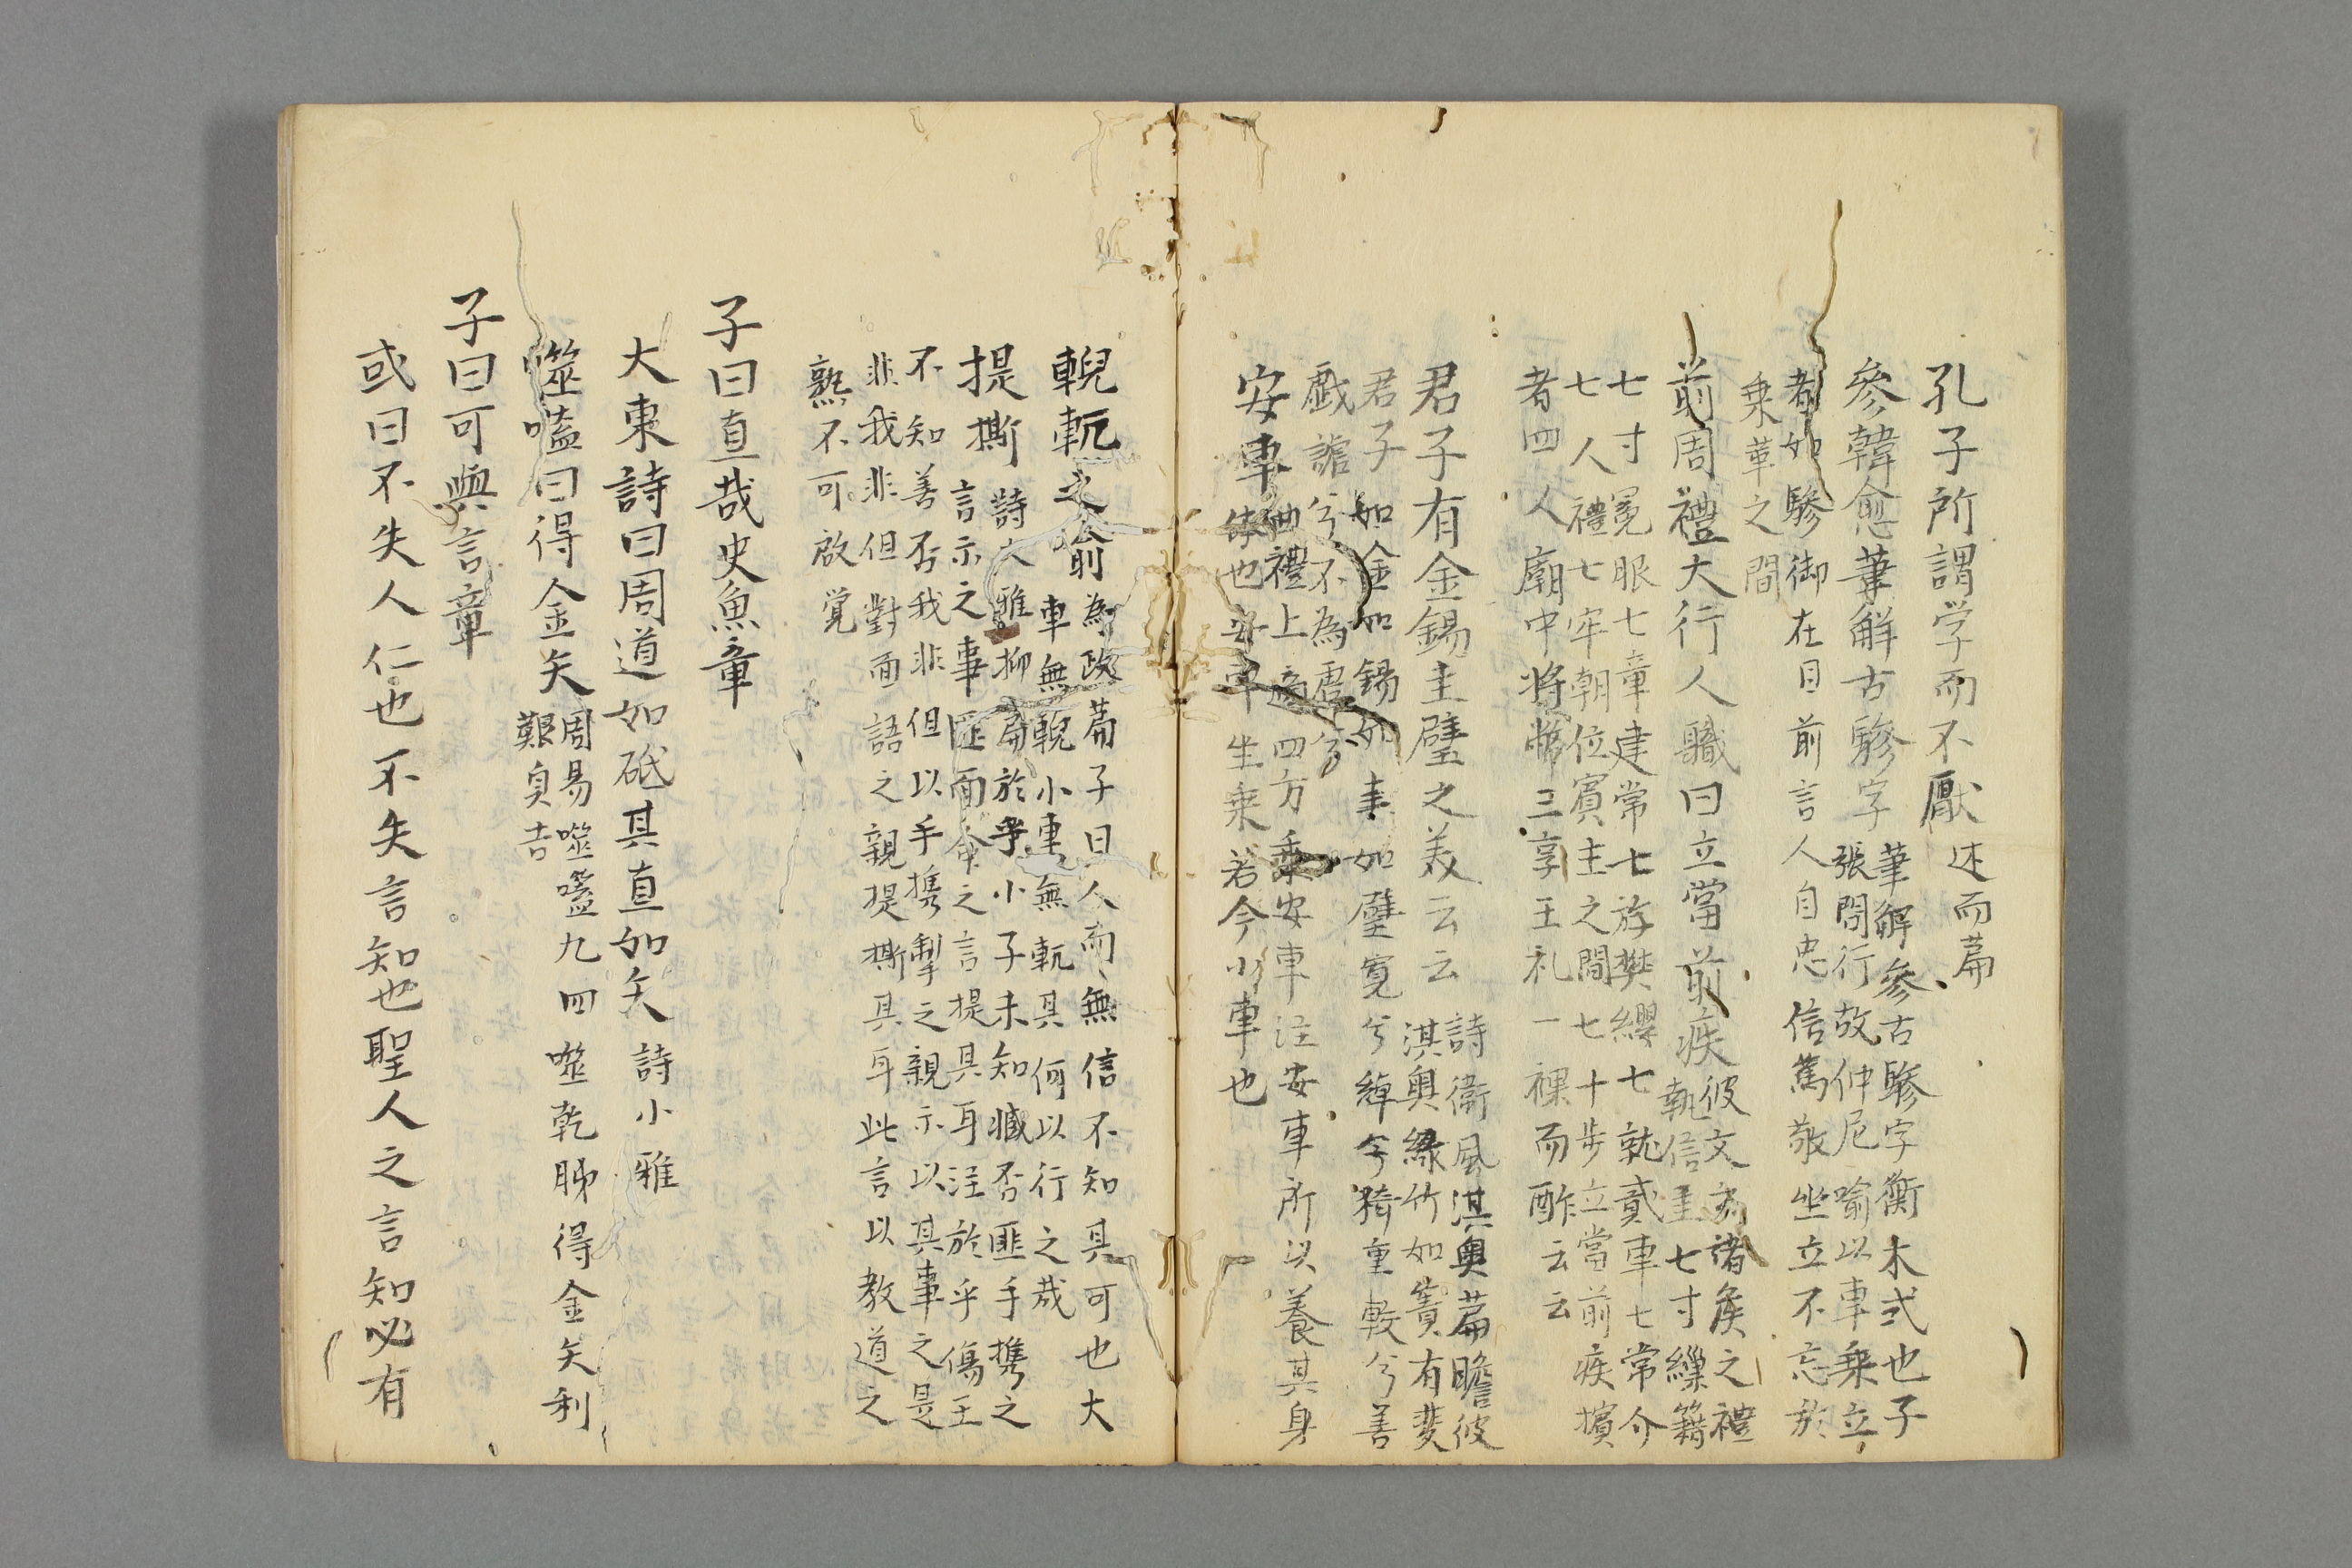 孔子所謂学而不厭 述而篇
參韓愈筆解古驂字 筆解參古驂字衡木式也子
張問行故仲尼喻以車乗立
者如驂御在目前言人自忠信篤敬坐立不忘於
乗車之間
前周禮大行人職曰立當前疾 彼文諸侯之禮
執信圭七寸繅籍
七寸冕服七章建常七斿樊纓七就貳車七常介
七人禮七牢朝位賓主之間七十步立當前疾擯
者四人廟中将幣三享王礼一祼而酢云云
君子有金錫圭璧之美云云 詩衛風淇奥篇瞻彼
淇奥緑竹如簀有斐
君子如金如錫如圭如璧寛兮綽兮猗重較兮善
戯謔兮不為虐兮
安車 曲禮上適四方乗安車注安車所以養其身
体也安車坐乗若今小車也
輗軏之喻 為政篇子曰人而無信不知其可也大
車無輗小車無軏其何以行之哉
提撕 詩大雅抑篇於乎小子未知臧否匪手携之
言示之事匪面命之言提其耳注於乎傷王
不知善否我非但以手携掣之親示以其事之是
非我非但對面語之親提撕其耳此言以教道之
熟不可啟覚
子曰直哉史魚章
大東詩曰周道如砥其直如矢 詩小雅
噬嗑曰得金矢 周易噬嗑九四噬乾胏得金矢利
艱貞吉
子曰可與言章
或曰不失人仁也不失言知也聖人之言知必有